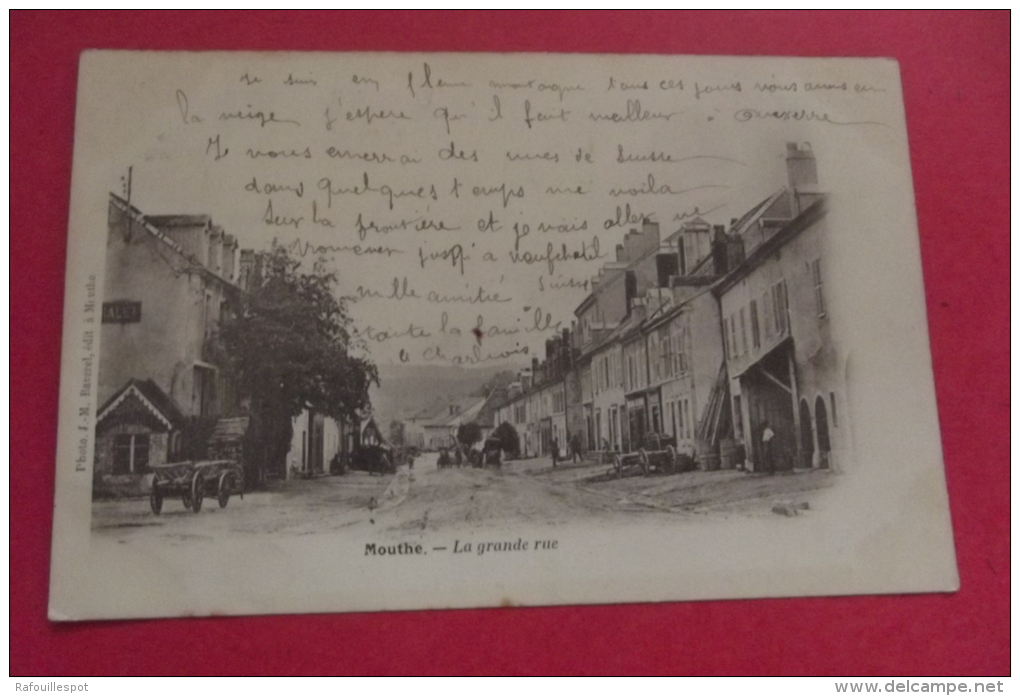 Je suis en pleine montagne tous ces jours nous avons eu
la neige j'espere qu'il fait meilleur à Auxerre
Je vous enverrai des vues de Suisse
dans quelques temps me voila
sur la frontière et je vais aller me
promener jusqu'à neufchatel
Suisse
mille amitié
toute la famille
a Charlois
Photo. J.-M. édit. à Mouthe
Mouthe. — La grande rue
Rafouillespot
www.delcampe.net